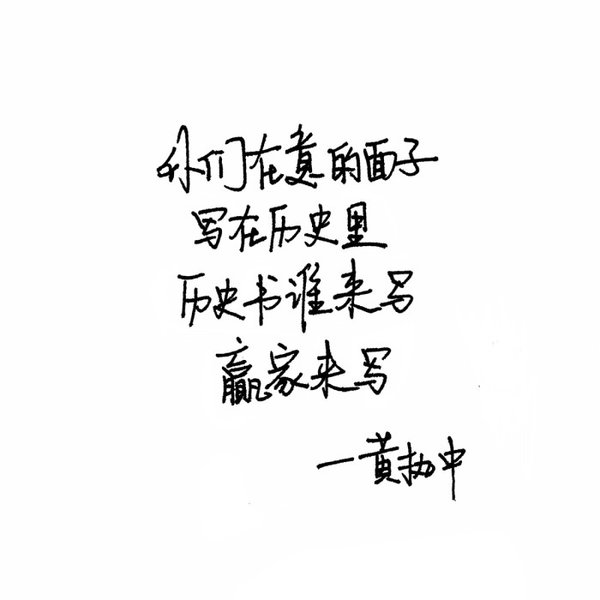 你们在意的面子
写在历史里
历史书谁来写
赢家来写
—黄执中